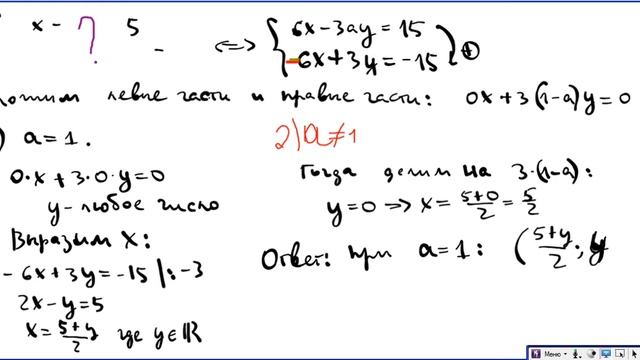 x - ? 5
⟺ { 6x - 3ay = 15
-6x + 3y = -15 ⊕
левые части и правые части: 0x + 3(1-a)y = 0
) a = 1.
0·x + 3·0·y = 0
y - любое число
Выразим x:
- 6x + 3y = -15 |: -3
2x - y = 5
x = (5+y)/2 где y ∈ ℝ
2) a ≠ 1
Тогда делим на 3·(1-a):
y = 0 ⟹ x = (5+0)/2 = 5/2
Ответ: при a = 1: ((5+y)/2; y
Меню